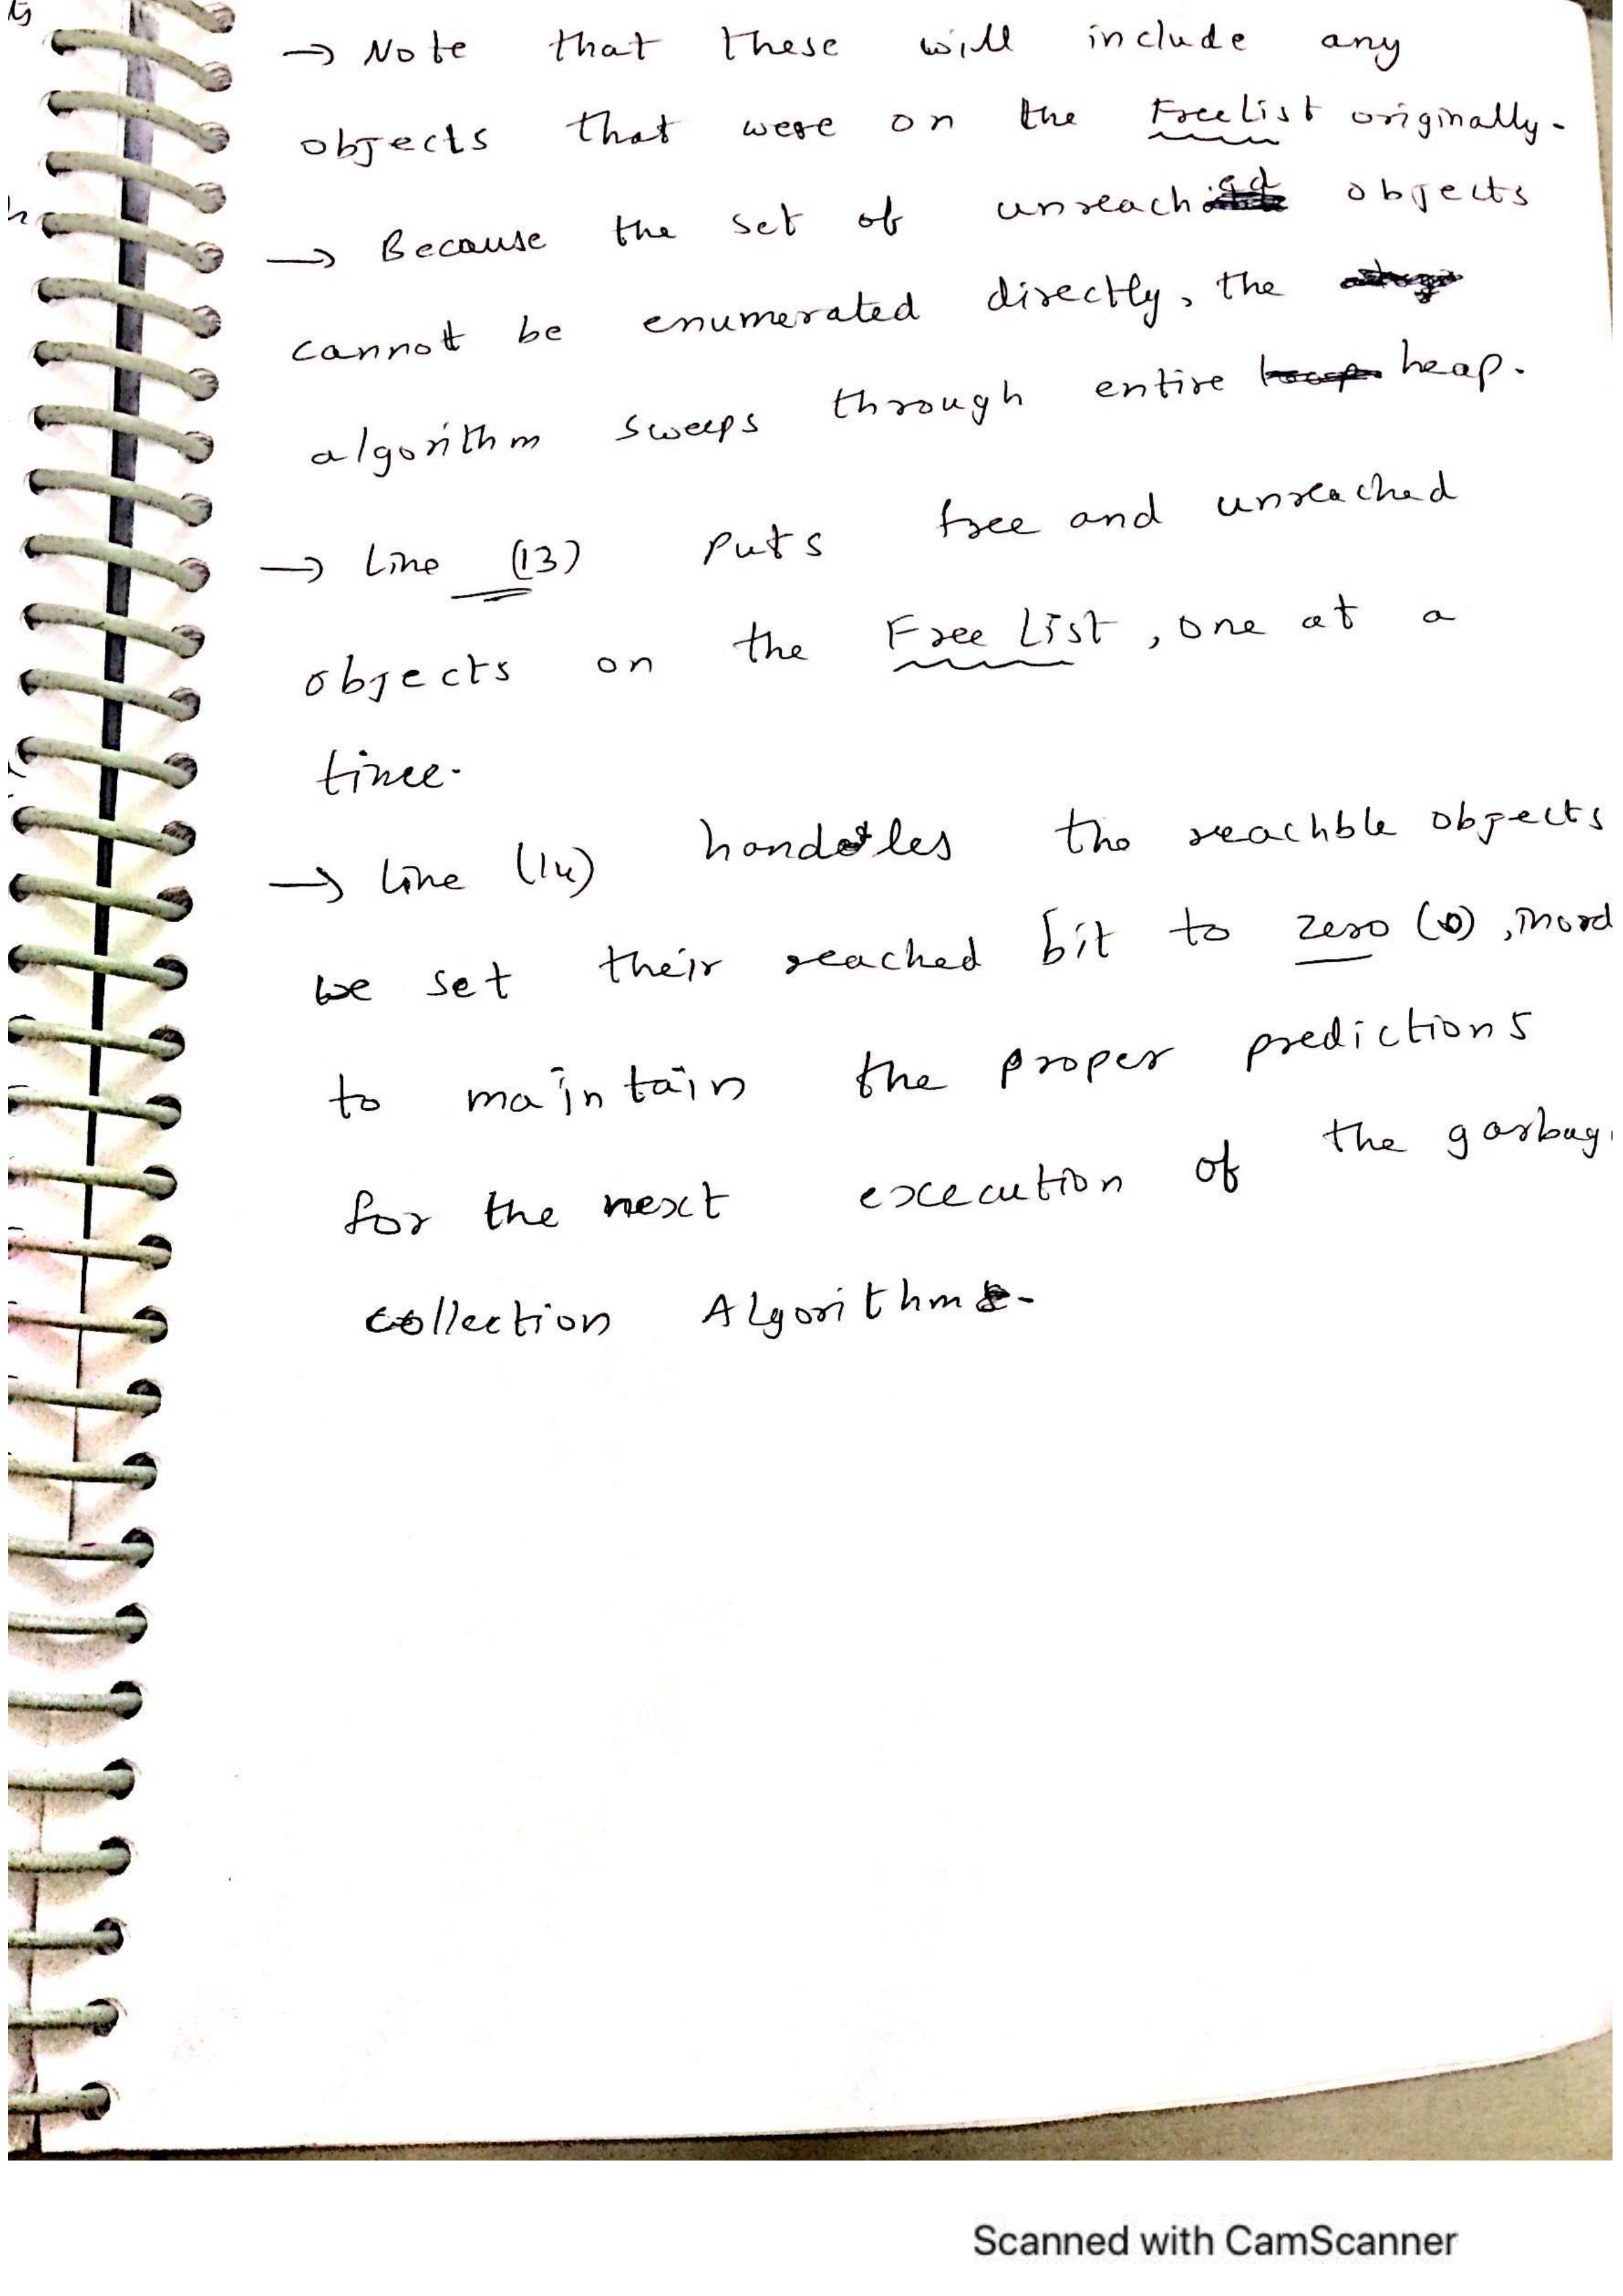 → Note that these will include any
objects that were on the Freelist originally.
→ Because the set of unreached objects
cannot be enumerated directly, the
algorithm sweeps through entire heap.
→ Line (13) puts free and unreached
objects on the Free List, one at a
time.
→ Line (14) handles the reachble objects
we set their reached bit to zero (0), inord
to maintain the proper predictions
for the next execution of the garbag
collection Algorithm.
Scanned with CamScanner